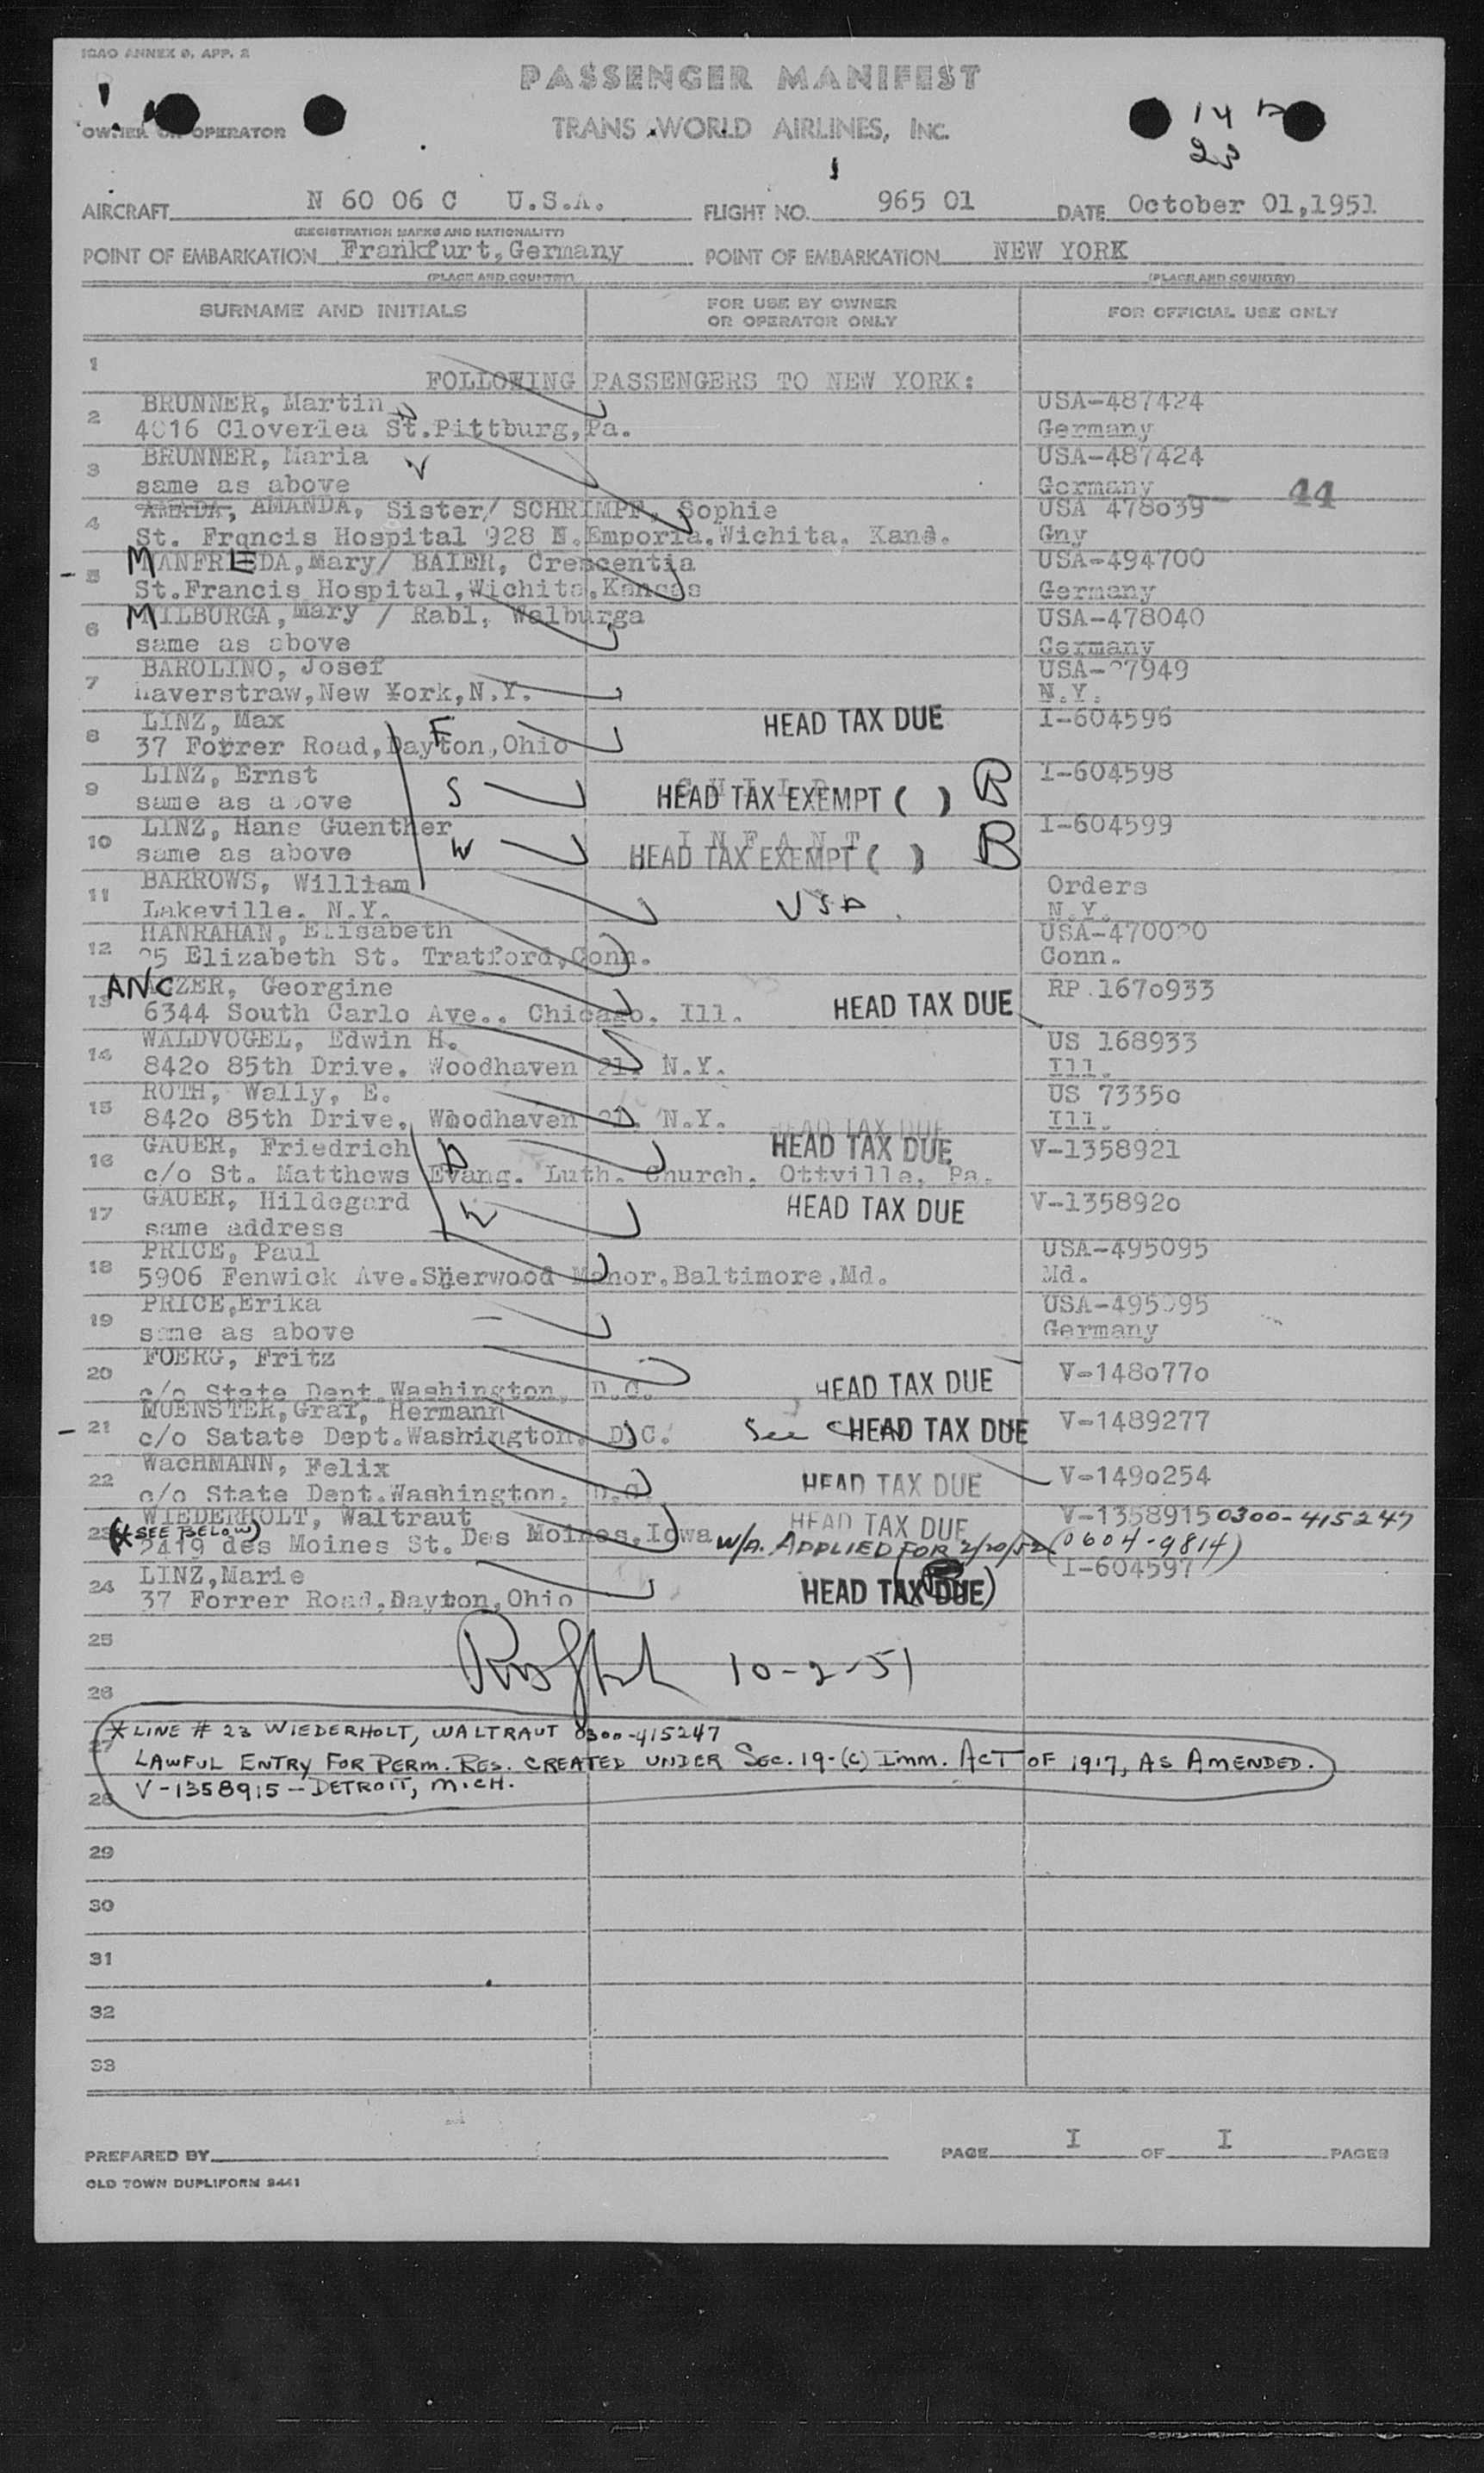 ICAO ANNEX 9, APP. 2
PASSENGER MANIFEST
OWNER OR OPERATOR
TRANS WORLD AIRLINES, INC.
14
23
AIRCRAFT N 60 06 C U.S.A. FLIGHT NO. 965 01 DATE October 01,1951
(REGISTRATION MARKS AND NATIONALITY)
POINT OF EMBARKATION Frankfurt,Germany POINT OF EMBARKATION NEW YORK
(PLACE AND COUNTRY) (PLACE AND COUNTRY)
SURNAME AND INITIALS FOR USE BY OWNER OR OPERATOR ONLY FOR OFFICIAL USE ONLY
1
FOLLOWING PASSENGERS TO NEW YORK:
2 BRUNNER, Martin USA-487424
4016 Cloverlea St.Pittburg,Pa. Germany
3 BRUNNER, Maria USA-487424
same as above Germany 44
4 AMADA, AMANDA, Sister/ SCHRIMPF, Sophie USA 478039
St. Francis Hospital 928 N.Emporia.Wichita. Kans. Gny
5 MANFREDA,Mary/ BAIER, Crescentia USA-494700
St.Francis Hospital,Wichita,Kansas Germany
6 MILBURGA,Mary / Rabl, Walburga USA-478040
same as above Germany
7 BAROLINO, Josef USA- 7949
Haverstraw,New York,N.Y. N.Y.
8 LINZ, Max F HEAD TAX DUE I-604596
37 Forrer Road,Dayton,Ohio
9 LINZ, Ernst CHILD I-604598
same as above S HEAD TAX EXEMPT ( ) B
10 LINZ, Hans Guenther INFANT I-604599
same as above HEAD TAX EXEMPT ( ) B
11 BARROWS, William USA Orders
Lakeville. N.Y. N.Y.
12 HANRAHAN, Elisabeth USA-4700 0
5 Elizabeth St. Tratford,Conn. Conn.
13 ANCZER, Georgine HEAD TAX DUE RP 1670933
6344 South Carlo Ave.. Chicago. Ill.
14 WALDVOGEL, Edwin H. US 168933
8420 85th Drive. Woodhaven 21. N.Y. Ill.
15 ROTH, Wally, E. US 73350
8420 85th Drive. Woodhaven 21. N.Y. Ill.
HEAD TAX DUE
16 GAUER, Friedrich HEAD TAX DUE V-1358921
c/o St. Matthews Evang. Luth. Church. Ottville. Pa.
17 GAUER, Hildegard HEAD TAX DUE V-1358920
same address
18 PRICE, Paul USA-495095
5906 Fenwick Ave.Sherwood Manor,Baltimore.Md. Md.
19 PRICE,Erika USA-495095
same as above Germany
20 FOERG, Fritz HEAD TAX DUE V-1480770
c/o State Dept.Washington, D.C.
21 MUENSTER,Graf, Hermann See HEAD TAX DUE V-1489277
c/o Satate Dept.Washington. D.C.
22 WACHMANN, Felix HEAD TAX DUE V-1490254
c/o State Dept.Washington. D.C.
23 WIEDERHOLT, Waltraut HEAD TAX DUE V-1358915 0300-415247
(* SEE BELOW) 2419 des Moines St. Des Moines,Iowa W/A. APPLIED FOR 2/20/52 (0604-9814)
24 LINZ,Marie HEAD TAX DUE I-604597
37 Forrer Road.Dayton,Ohio
25
10-2-51
26
* LINE # 23 WIEDERHOLT, WALTRAUT 0300-415247
27
LAWFUL ENTRY FOR PERM. RES. CREATED UNDER SEC. 19-(C) IMM. ACT OF 1917, AS AMENDED.
V-1358915 - DETROIT, MICH.
28
29
30
31
32
33
PREPARED BY PAGE I OF I PAGES
OLD TOWN DUPLIFORM 9441